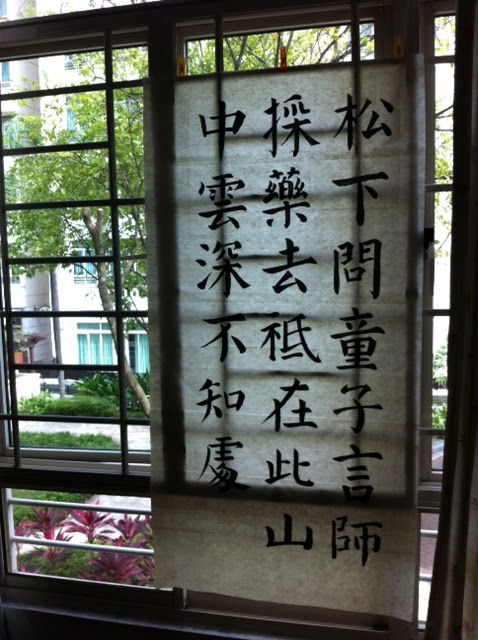 松下問童子言師
採藥去祗在此山
中雲深不知處